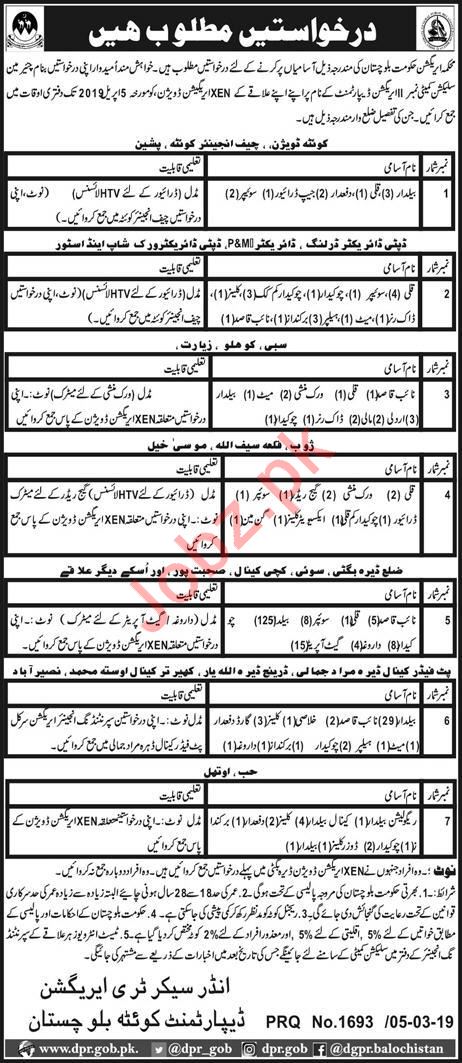 درخواستیں مطلوب ھیں
محکمہ ایریگیشن حکومت بلوچستان کی مندرجہ ذیل آسامیاں پر کرنے کے لئے درخواستیں مطلوب ہیں۔ خواہش مند امیدوار اپنی درخواستیں بنام چیئرمین
سلیکشن کمیٹی نمبر II ایریگیشن ڈیپارٹمنٹ کے نام پر اپنے اپنے علاقے کے XEN ایریگیشن ڈویژن، کو مورخہ 5 اپریل 2019 تک دفتری اوقات میں
جمع کرائیں۔ جن کی تفصیل ضلع وار مندرجہ ذیل ہیں۔
کوئٹہ ڈویژن، چیف انجینئر کوئٹہ، پشین
نمبر شمار نام آسامی تعلیمی قابلیت
1 بیلدار (3) قلی (1)، دفعدار (2) جیپ ڈرائیور (1) سوئپر (2) مڈل (ڈرائیور کے لئے HTV لائسنس) (نوٹ، اپنی
درخواستیں چیف انجینئر کوئٹہ میں جمع کروائیں۔)
ڈپٹی ڈائریکٹر ڈرلنگ، ڈائریکٹر P&M، ڈپٹی ڈائریکٹر ورک شاپ اینڈ اسٹور
نمبر شمار نام آسامی تعلیمی قابلیت
2 قلی (4)، سوئپر (1)، چوکیدار (1)، چوکیدار کم کک (3)، کلینر (1)، مڈل (ڈرائیور کے لئے HTV لائسنس) (نوٹ، اپنی درخواستیں
ڈاک رنر (1)، میٹ (1)، ہیلپر (3) برکنداز (1)، نائب قاصد (1) چیف انجینئر کوئٹہ میں جمع کروائیں۔)
سبی، کوھلو، زیارت،
نمبر شمار نام آسامی تعلیمی قابلیت
3 نائب قاصد (1) قلی (1) ورک منشی (2) میٹ (1) بیلدار مڈل (ورک منشی کے لئے میٹرک) نوٹ:۔ اپنی
(3) اردلی (2) مالی (2) ڈاک رنر (1) چوکیدار (1) درخواستیں متعلقہ XEN ایریگیشن ڈویژن کے پاس جمع کروائیں
ژوب، قلعہ سیف اللہ، موسیٰ خیل
نمبر شمار نام آسامی تعلیمی قابلیت
4 قلی (2) ورک منشی (2) گیج ریڈر (1) سوئپر (1) مڈل (ڈرائیور کے لئے HTV لائسنس) گیج ریڈر کے لئے میٹرک
ڈرائیور (1) چوکیدار کم قلی (1) ایکسیویٹر کلینر (1) گن مین (1) نوٹ:۔ اپنی درخواستیں متعلقہ XEN ایریگیشن ڈویژن کے پاس جمع
کروائیں
ضلع ڈیرہ بگٹی، سوئی، کچی کینال، صحبت پور، اور اُسکے دیگر علاقے
نمبر شمار نام آسامی تعلیمی قابلیت
5 نائب قاصد (5) قلی (1) سوئپر (8) بیلدار (125) چو مڈل (داروغہ/ گیٹ آپریٹر کے لئے میٹرک) نوٹ:۔ اپنی
کیدار (8) داروغہ (4) گیٹ آپریٹر (15) درخواستیں متعلقہ XEN ایریگیشن ڈویژن کے پاس جمع کروائیں
پٹ فیڈر کینال ڈیرہ مراد جمالی، ڈرینج ڈیرہ اللہ یار، کھیر تر کینال اوستہ محمد، نصیر آباد
نمبر شمار نام آسامی تعلیمی قابلیت
6 بیلدار (29) نائب قاصد (2) خلاصی (1) کلینر (3) گارڈ دفعدار مڈل نوٹ:۔ اپنی درخواستیں سپرنٹنڈنگ انجینئر ایریگیشن سرکل
(1) میٹ (1) ہیلپر (2) چوکیدار (1) برکنداز (1) داروغہ (1) پٹ فیڈر کینال ڈیرہ مراد جمالی میں جمع کروائیں۔
حب، اوتھل
نمبر شمار نام آسامی تعلیمی قابلیت
7 ریگولیشن بیلدار (1) کینال بیلدار (4) کلینر (2) دفعدار (1) برکندا مڈل نوٹ:۔ اپنی درخواستیں متعلقہ XEN ایریگیشن ڈویژن کے
ز (1) چوکیدار (2) ڈوزر کلینر (1) بیلدار (1) پاس جمع کروائیں
نوٹ:۔ وہ افراد جنہوں نے XEN ایریگیشن ڈویژن ڈیرہ بگٹی میں پہلے درخواستیں جمع کرائیں ہیں۔ وہ افراد دوبارہ جمع نہ کرائیں۔
شرائط:۔ 1۔ بھرتی حکومت بلوچستان کی مروجہ پالیسی کے تحت ہوگی۔ 2۔ عمر کی حد 18 سے 28 سال ہونی چاہئے البتہ زیادہ سے زیادہ عمر کی حد سرکاری
قوانین کے تحت رعایت کی گنجائش دی جائے گی۔ 3۔ ریجنل کوٹہ کو مد نظر رکھ کر کمی بیشی کی جاسکتی ہے۔ 4۔ حکومت بلوچستان کے احکامات اور پالیسی کے
مطابق خواتین کے لئے 5%، اقلیتی کے لئے 5%، اور معذور افراد کے لئے 2% کوٹہ مختص کر دیا گیا ہے۔ 5۔ ٹیسٹ انٹرویوز ہر علاقے کے سپرنٹنڈ
نگ انجینئر کے دفتر میں سلیکشن کمیٹی کے سامنے لئے جائینگے جس کی تاریخ بعد میں اخبارات کے ذریعے سے مشتہر کی جائیگی۔
انڈر سیکرٹری ایریگیشن
ڈیپارٹمنٹ کوئٹہ بلوچستان
PRQ No.1693 /05-03-19
www.dpr.gob.pk. @dpr_gob @dgpr.balochistan
Jobz.pk